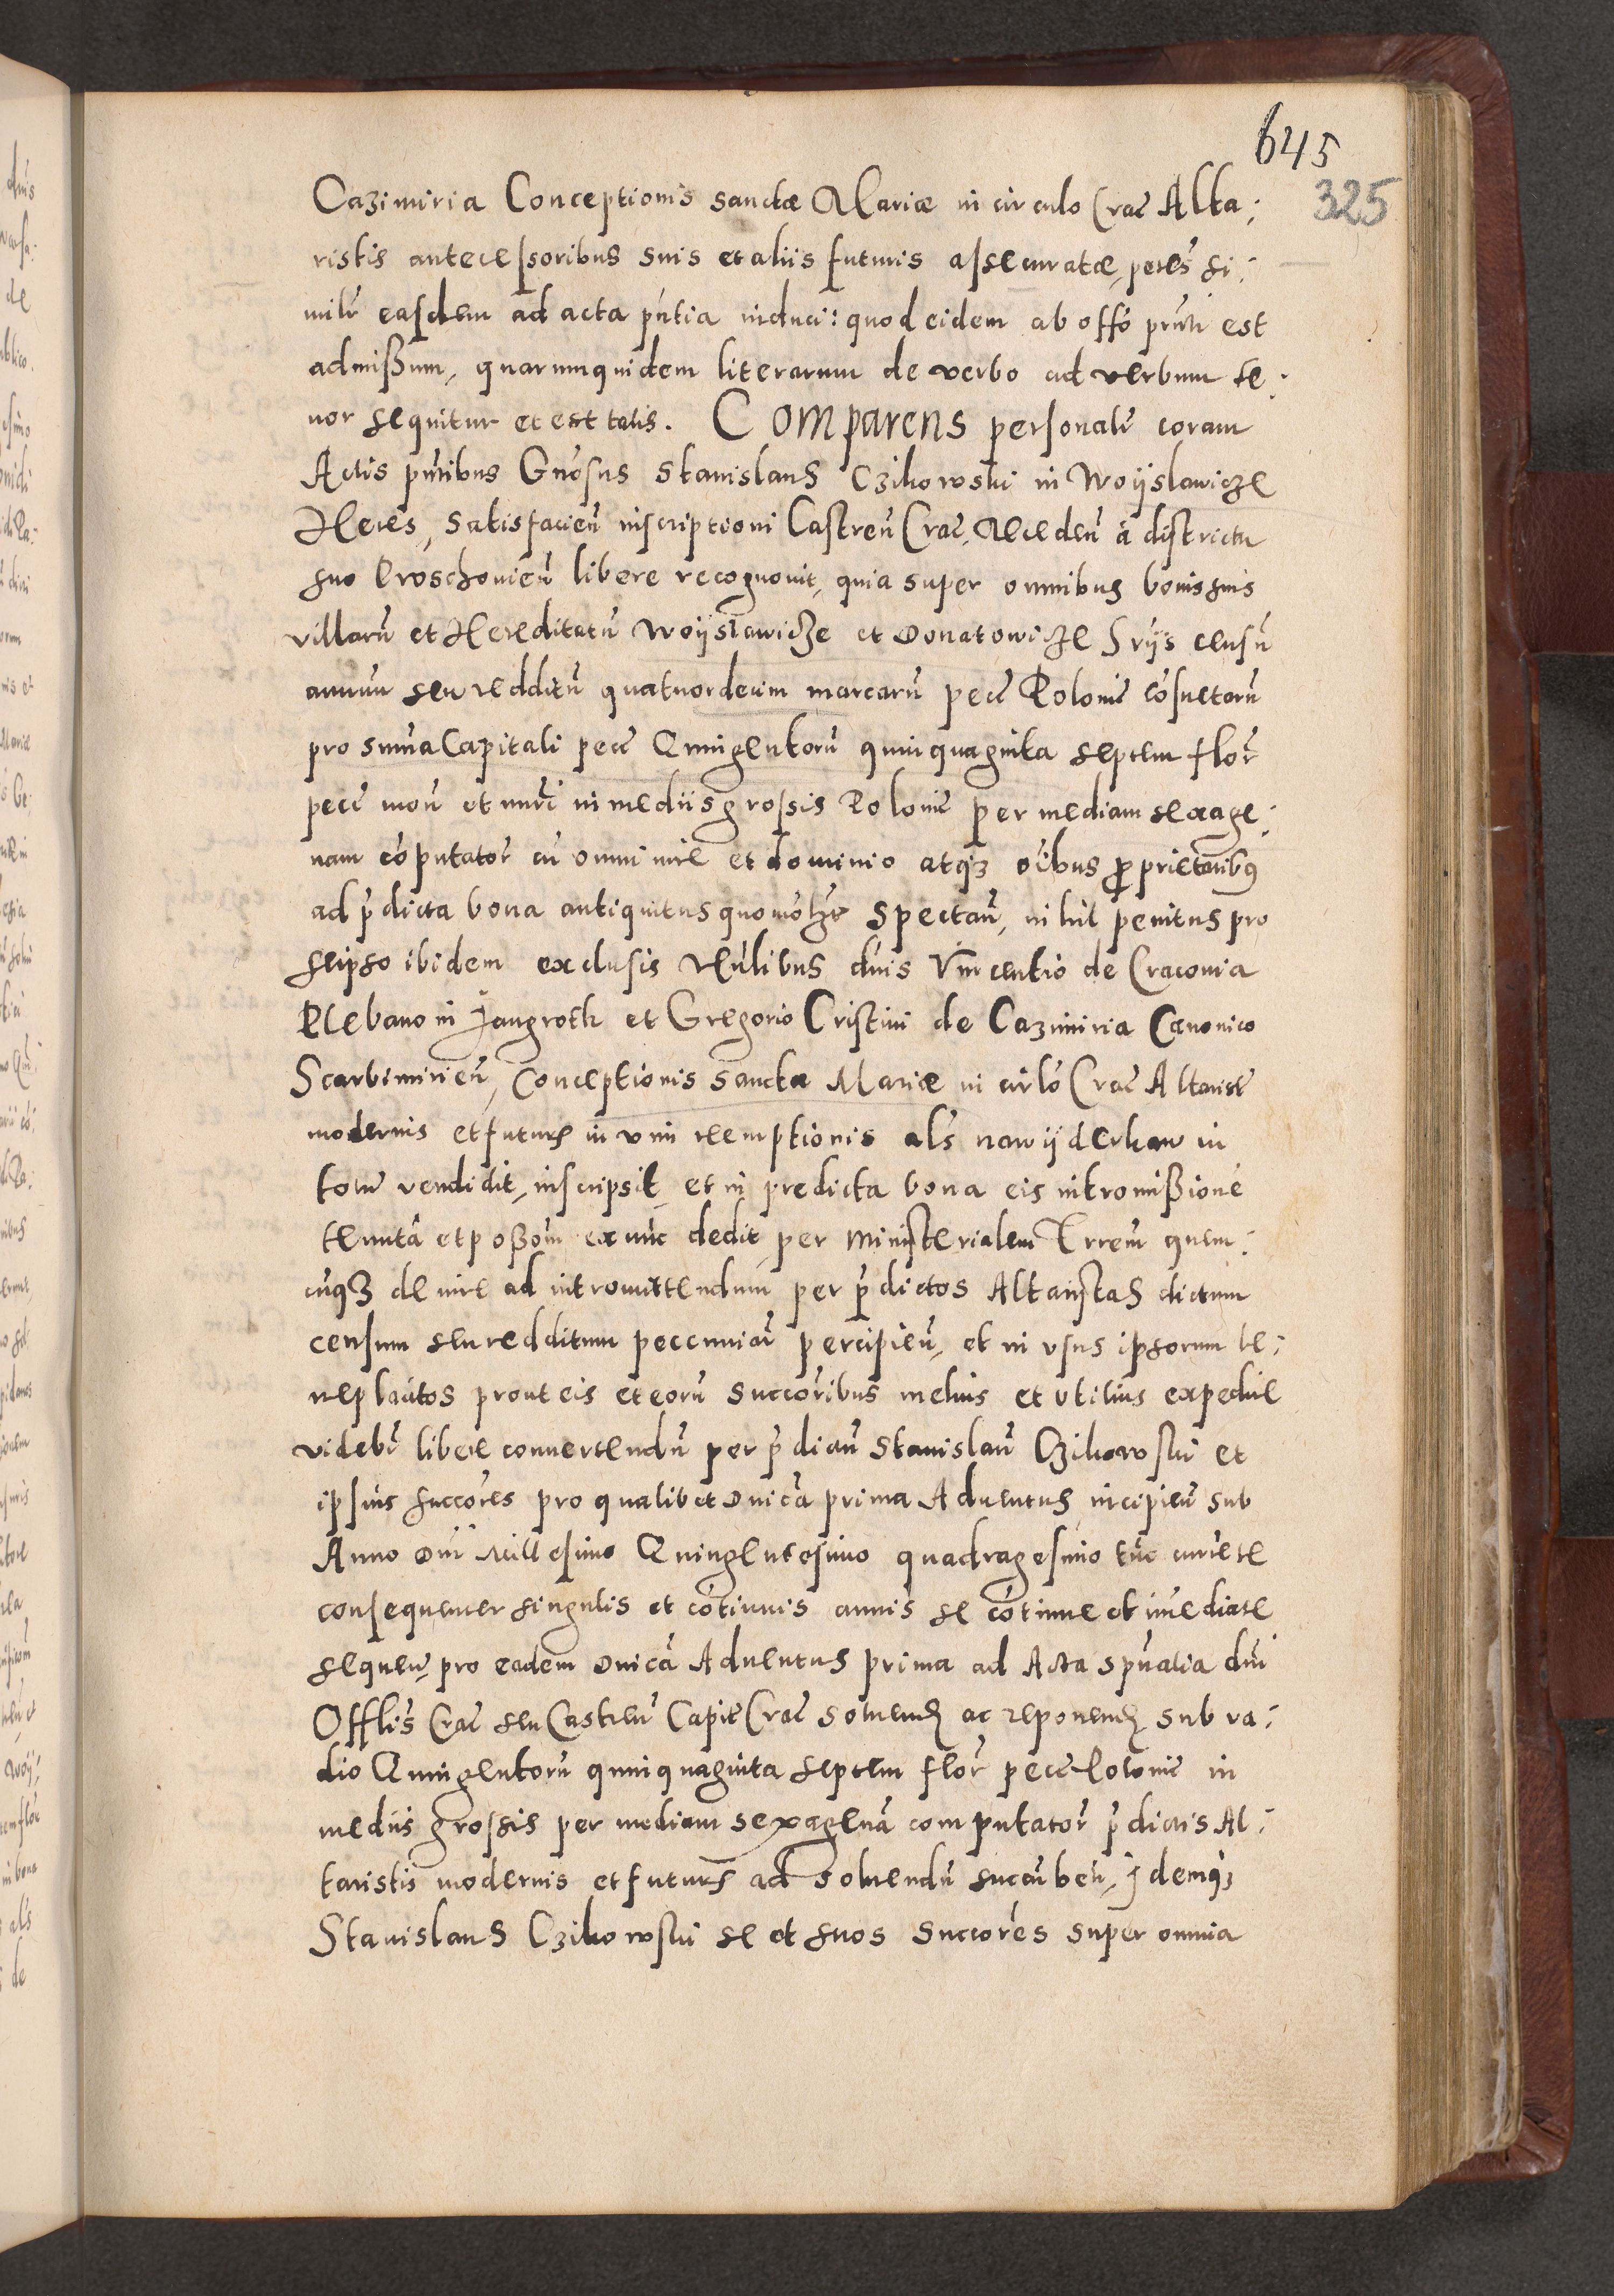 645
325
Cazimiria Conceptionis sanctæ Mariæ in circulo Crac̄ Alta:
ristis antecessoribus suis et aliis futuris assecuratæ, petēs si:
milr̄ easdem ad acta pn̄tia induci: quod eidem ab offō pn̄ti est
admißum, quarumquidem literarum de verbo ad verbum te:
nor sequitur et est talis. Comparens personalr̄ coram
Actis pn̄tibus Gn̄osus Stanislaus Czikowski in Woÿslawicze
Heres, satisfacien̄ inscriptioni Castren̄ Crac̄, Receden̄ à districtu
suo Proschouien̄ libere recognouit, quia super omnibus bonis suis
villarū et Hereditatū Woÿslawicze et Donatowicze Srÿs censū
annuū seu redditū quatuordecim marcarū pecc̄ Polonic̄ cōsuetarū
pro summa Capitali pecc̄ Quingentorū quinquaginta septem flor̄
pecc̄ mon̄ et nur̄i in mediis grossis Polonic̄ per mediam sexage:
nam cōputator̄ cū omni iure et dominio atq3 oībus proprietatibus
ad p̄dicta bona antiquitus quomōlz̄t spectan̄, nihil penitus pro
seipso ibidem exclusis Nūlibus dn̄is Vincentio de Cracouia
Plebano in Jangroth et Gregorio Cristini de Cazimiria Canonico
Scarbimirien̄, Conceptionis sanctæ Mariæ in circlō Crac̄ Altarist̄
modernis et futuris in vim reemptionis als̄ na wÿderkaw in
totū vendidit, inscripsit et in predicta bona eis intromißionē
tenutā et poßom̄ ex nūc dedit per Ministerialem Trrem̄ quem:
cūq3 de iure ad intromittendum per p̄dictos Altaristas dictum
censum seu redditum peccuniar̄ percipien̄, et in vsus ipsorum be:
neplacitos prout eis et eorū succōribus melius et vtilius expedire
videbr̄ libere conuertendū per p̄dictū Stanislaū Czikowski et
ipsius succores pro qualibet Dnīca prima Aduentus incipien̄ sub
Anno Dnī Millesimo Quingentesimo quadragesimo tūc currete
consequenter singulis et cōtinuis annis se cōtinue et imediate
sequen̄, pro eadem Dnīca Aduentus prima ad Acta spn̄alia dn̄i
Offlīs Crac̄ seu Castren̄ Capit̄ Crac̄ soluend̄ ac reponend̄ sub va:
dio Quingentorū quinquaginta septem flor̄ pecc̄ Polonic̄ in
mediis grossis per mediam sexagenā computator̄ p̄dictis Al:
taristis modernis et futuris ad soluendū succūben̄, Jdemq3
Stanislaus Czikowski se et suos succores super omnia